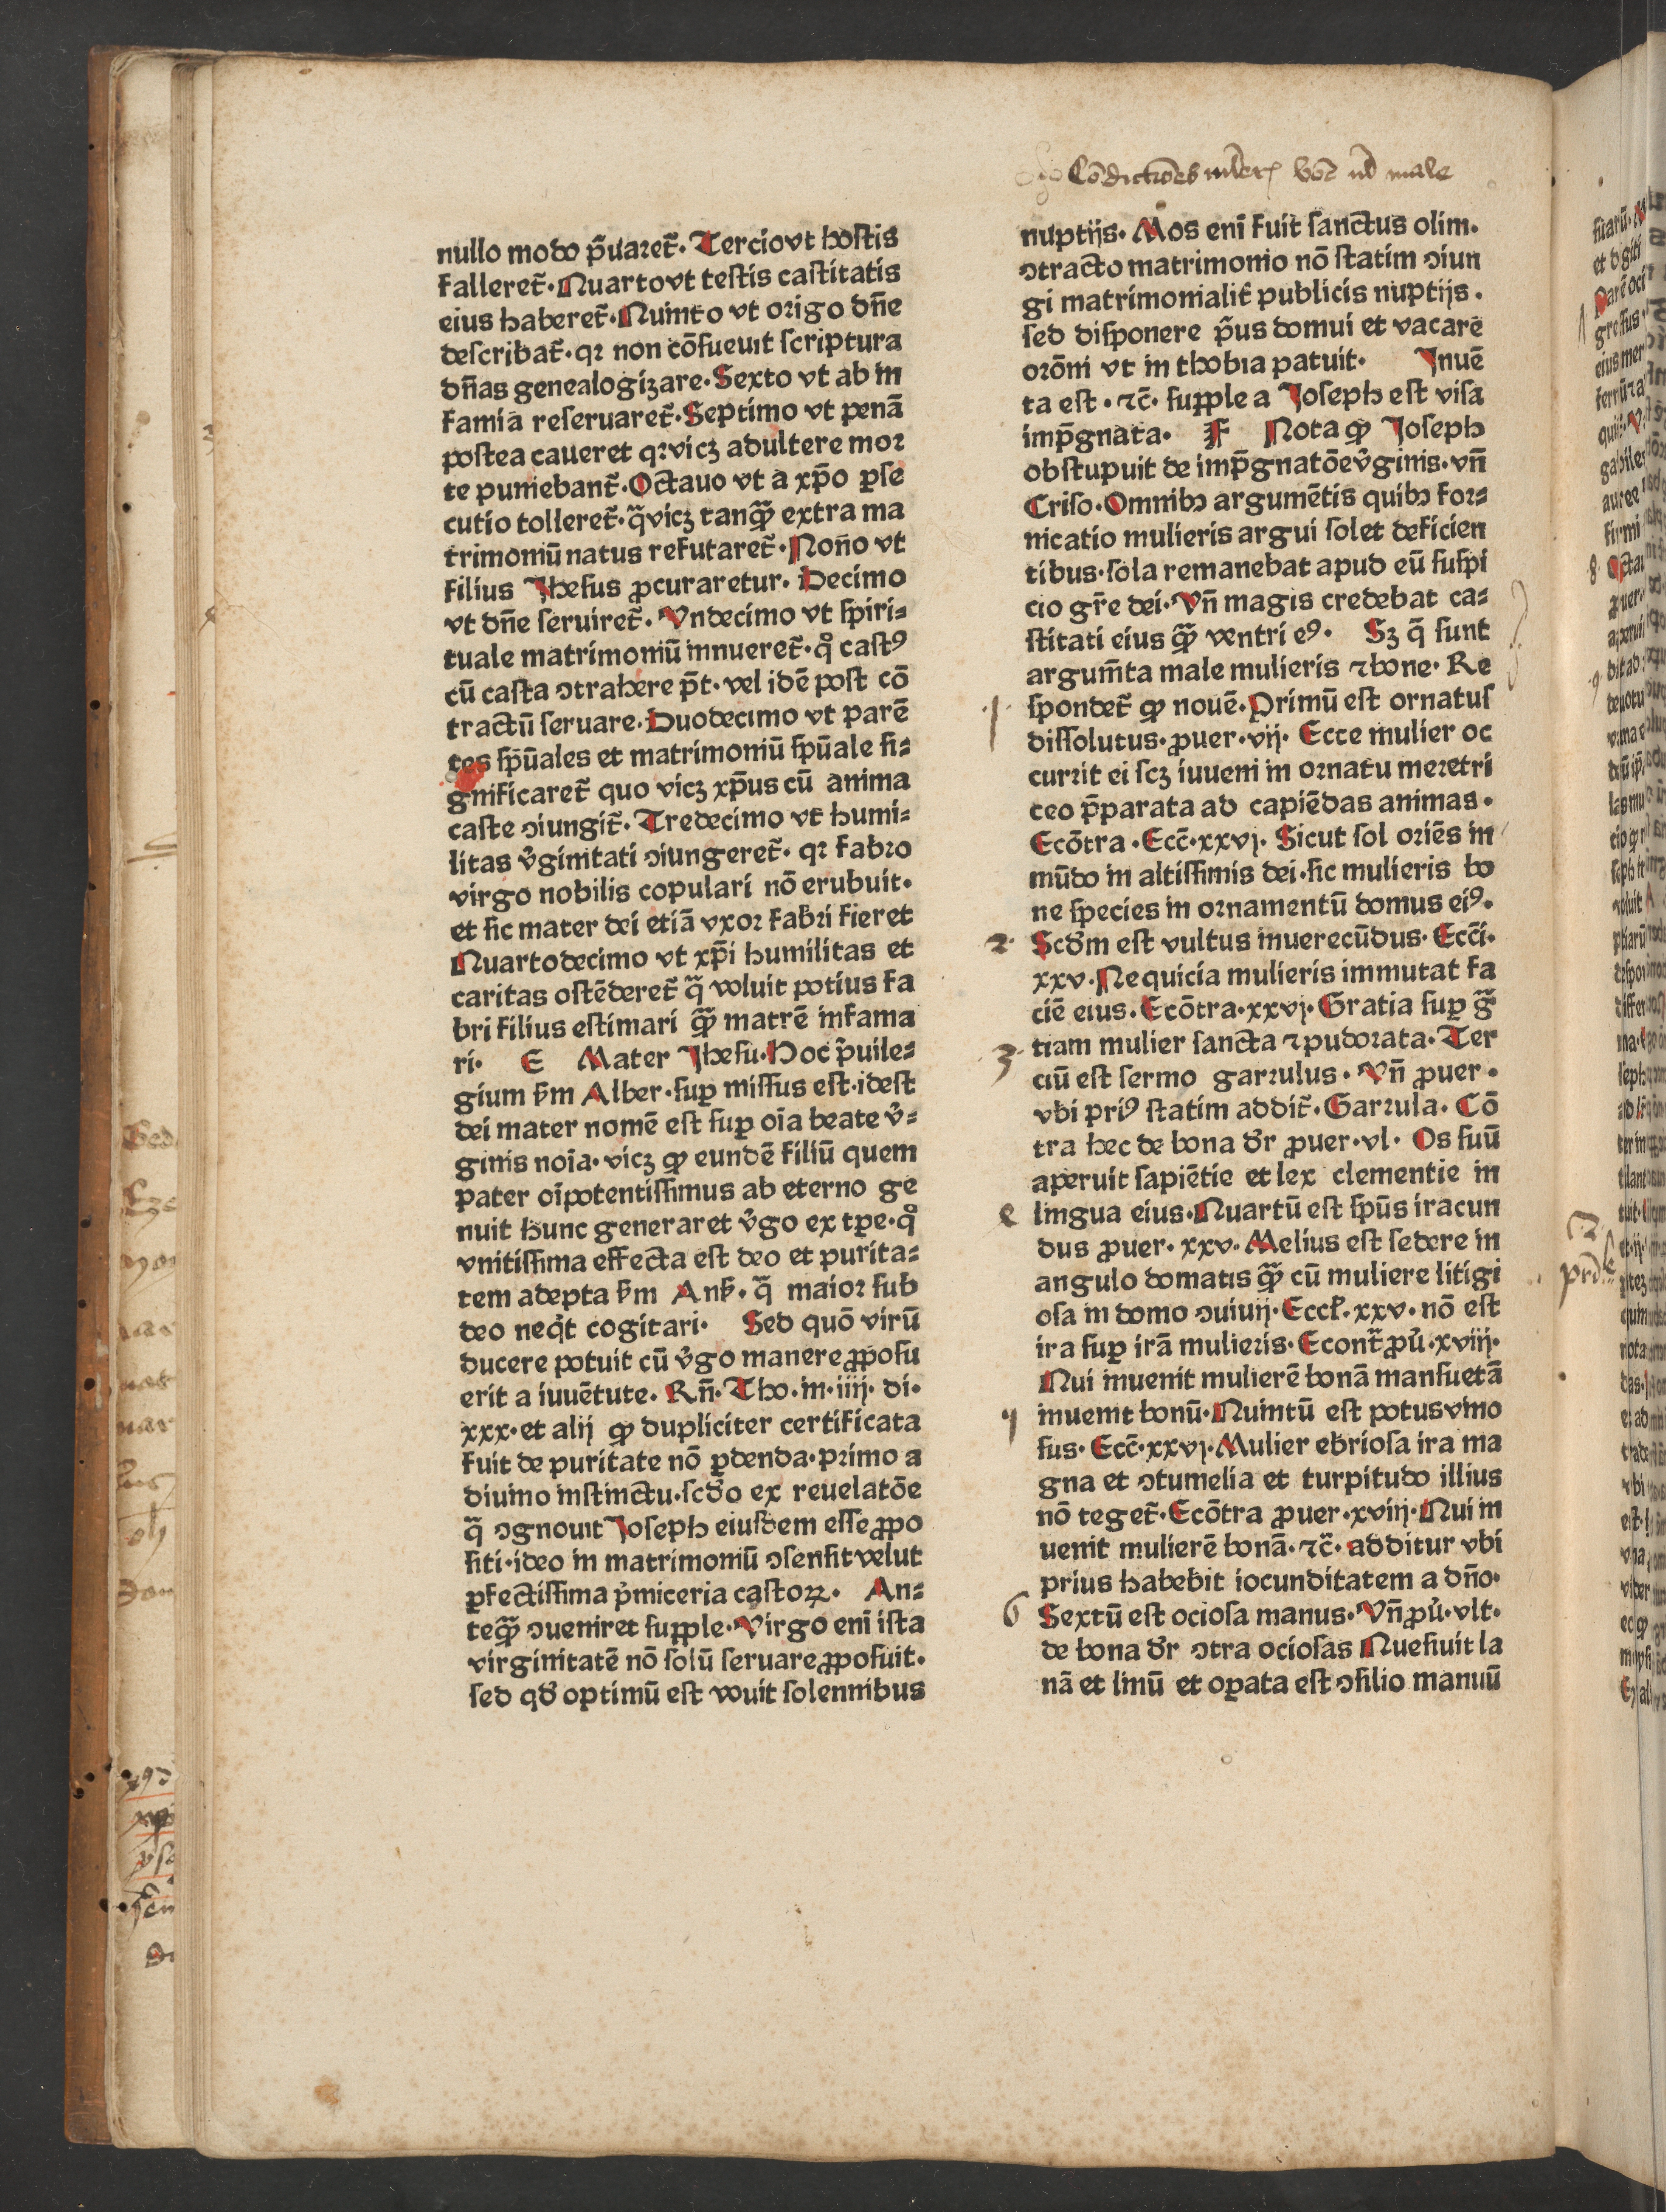 Cōdictiōes mlier bōe et male
nullo modo p̄uaret̄. Tercio vt hostis
falleret̄. Quarto vt testis castitatis
eius haberet̄. Quinto vt origo dn̄e
describat̄. qꝛ non cōsueuit scriptura
dn̄as genealogizare. Sexto vt ab in
famia reseruaret̄. Septimo vt penā
postea caueret qꝛ vicꝫ adultere moꝛ
te puniebant̄. Octauo vt a xp̄o ꝑse
cutio tolleret̄. q̄ vicꝫ tanqꝫ̄ extra ma
trimoniū natus refutaret̄. Nono vt
filius Jhesus ꝓcuraretur. Decimo
vt dn̄e seruiret̄. Vndecimo vt spiri⸗
tuale matrimoniū innueret̄. qͦ castꝰ
cū casta ꝯtrahere p̄t. vel idē post cō
tractū seruare. Duodecimo vt parē
tes sp̄uales et matrimoniū sp̄uale si⸗
gnificaret̄ quo vicꝫ xp̄us cū anima
caste ꝯiungit̄. Tredecimo vt humi⸗
litas v̓ginitati ꝯiungeret̄. qꝛ fabꝛo
virgo nobilis copulari nō erubuit.
et sic mater dei etiā vxoꝛ fabri fieret
Quartodecimo vt xp̄i humilitas et
caritas ostēderet̄ q̄ voluit potius fa
bri filius estimari qꝫ̄ matrē infama
ri. E Mater Jhesu. Hoc p̄uile⸗
gium ẜm Alber. suꝑ missus est. idest
dei mater nomē est suꝑ oīa beate v̓⸗
ginis noīa. vicꝫ ꝙ eundē filiū quem
pater oīpotentissimus ab eterno ge
nuit hunc generaret v̓go ex tꝑe. qͦ
vnitissima effecta est deo et purita⸗
tem adepta ẜm Anẜ. q̄ maioꝛ sub
deo neqͥt cogitari. Sed quō virū
ducere potuit cū v̓go manere ꝓposu
erit a iuuētute. Rn̄. Tho. in. iiij. di.
xxx. et alij ꝙ dupliciter certificata
fuit de puritate nō ꝑdenda. primo a
diuino instinctu. scd̓o ex reuelatōe
q̄ ꝯgnouit Joseph eiusdem esse ꝓpo
siti. ideo in matrimoniū ꝯsensit velut
ꝑfectissima pͥmiceria castoꝝ. An⸗
teqꝫ̄ ꝯueniret supple. Virgo eni ista
virginitatē nō solū seruare ꝓposuit.
sed qd̓ optimū est vouit solennibus
nuptijs. Mos eni fuit sanctus olim.
ꝯtracto matrimonio nō statim ꝯiun
gi matrimonialit̓ publicis nuptijs.
sed disponere p̄us domui et vacare
oꝛōni vt in thobia patuit. Inuē
ta est. ⁊c̄. supple a Joseph est visa
imp̄gnata. F Nota ꝙ Joseph
obstupuit de imp̄gnatōe v̓ginis. vn̄
Criso. Omnibꝫ argumētis quibꝫ foꝛ⸗
nicatio mulieris argui solet deficien
tibus. sola remanebat apud eū suspi
cio gr̄e dei. Vn̄ magis credebat ca⸗
stitati eius qꝫ̄ ventri eꝰ. Sꝫ q̄ sunt
argum̄ta male mulieris ⁊ bone. Re
1 spondet̄ ꝙ nouē. Primū est ornatus
dissolutus. ꝓuer. vij. Ecce mulier oc
currit ei scꝫ iuueni in oꝛnatu meretri
ceo p̄parata ad capiēdas animas.
Ecōtra. Ecc̄. xxvj. Sicut sol oriēs in
mūdo in altissimis dei. sic mulieris bo
ne species in oꝛnamentū domus eiꝰ.
2 Scd̓m est vultus inuerecūdus. Ecc̄i.
xxv. Nequicia mulieris immutat fa
ciē eius. Ecōtra. xxvj. Gratia suꝑ gr̄a
3 tiam mulier sancta ⁊ pudoꝛata. Ter
ciū est sermo garrulus. Vn̄ ꝓuer.
vbi priꝰ statim addit̄. Garrula. Cō
tra hec de bona d̓r ꝓuer. vl. Os suū
aperuit sapiētie et lex clementie in
4 lingua eius. Quartū est sp̄us iracun
dus ꝓuer. xxv. Melius est sedere in
angulo domatis qꝫ̄ cū muliere litigi
osa in domo ꝯuiuij. Eccl̄. xxv. nō est
ira suꝑ irā mulieris. Econtr̄ ꝓu̓. xviij.
Qui inuenit mulierē bonā mansuetā
5 inuenit bonū. Quintū est potus vino
sus. Ecc̄. xxvj. Mulier ebriosa ira ma
gna et ꝯtumelia et turpitudo illius
nō teget̄. Ecōtra ꝓuer. xviij. Qui in
uenit mulierē bonā. ⁊c̄. additur vbi
prius habebit iocunditatem a dn̄o.
6 Sextū est ociosa manus. Vn̄ ꝓu̓. vlt.
de bona d̓r ꝯtra ociosas Quesiuit la
nā et linū et oꝑata est ꝯsilio manuū